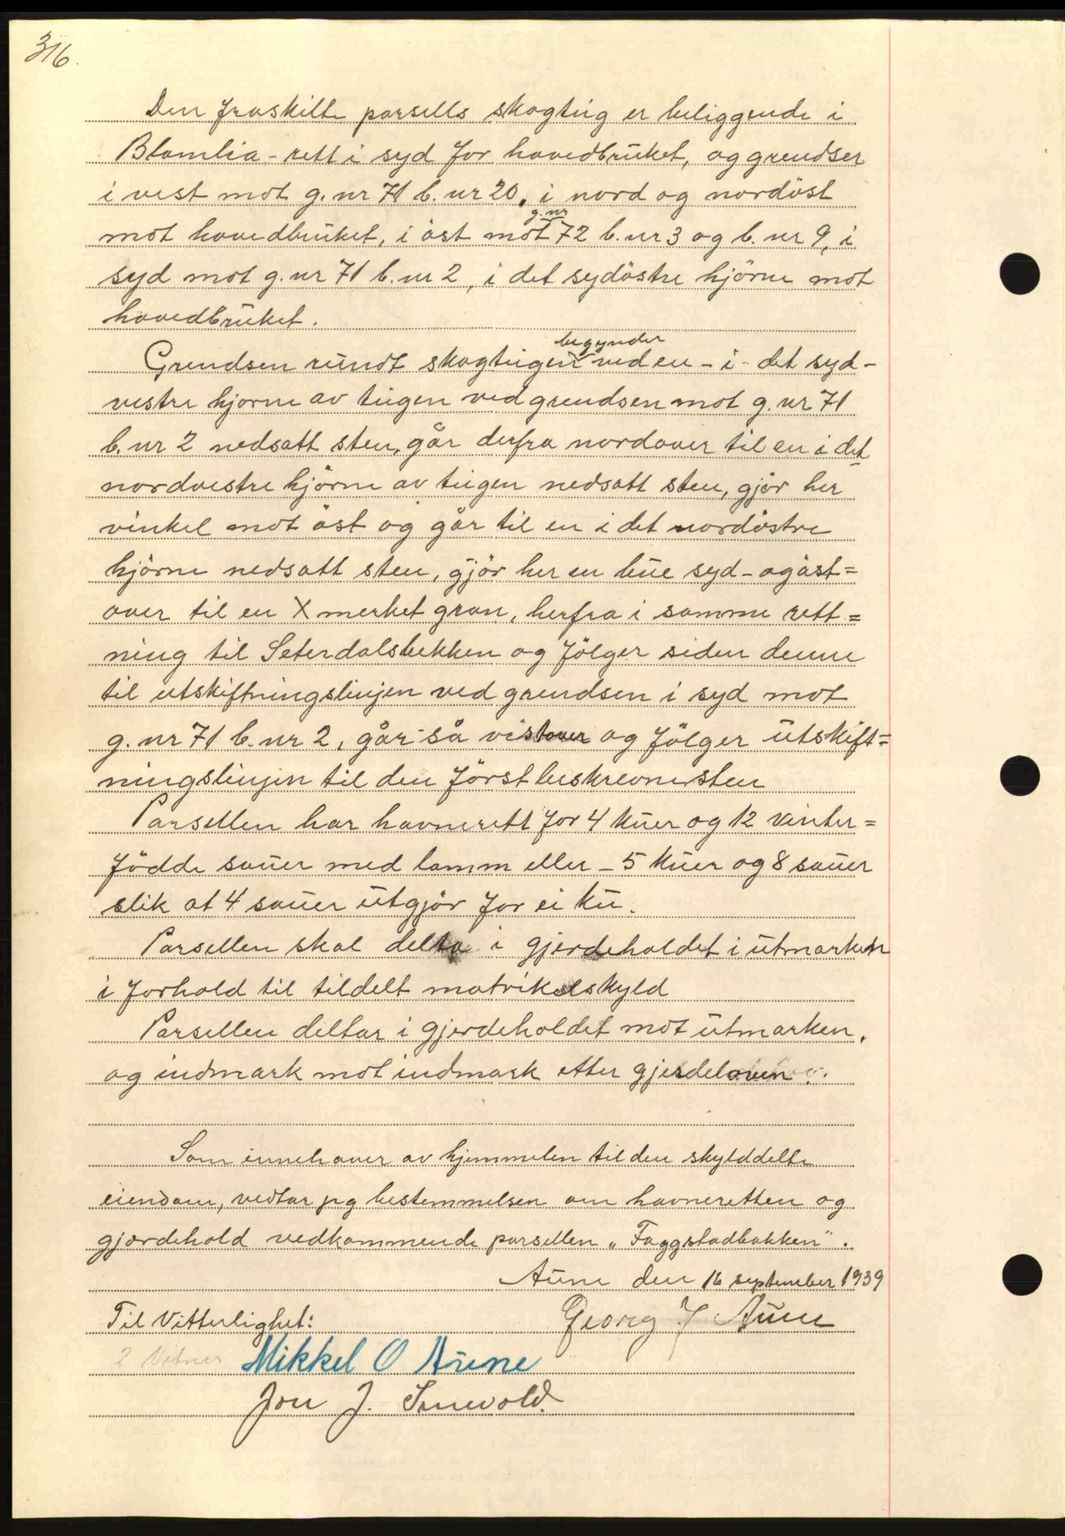 316.
Den fraskilte parsells skogteig er beliggende i
Blomlia - rett i syd for hovedbruket, og grendser
i vest mot g. nr 71 b. nr 20, i nord og nordöst
mot hovedbruket, i öst mot g. nr 72 b. nr 3 og b. nr 9, i
syd mot g. nr 71 b. nr 2, i det sydöstre hjörne mot
hovedbruket.
Grendsen rundt skogteigen begynder ved en - i - det syd-
vestre hjorne av teigen ved grendsen mot g. nr 71
b. nr 2 nedsatt sten, går derfra nordover til en i det
nordvestre hjörne av teigen nedsatt sten, gjör her
vinkel mot öst og går til en i det nordöstre
hjörne nedsatt sten, gjör her en bue syd - og öst=
over til en X merket gran, herfra i samme rett=
ning til Seterdalsbekken og fölger siden denne
til utskiftningslinjen ved grendsen i syd mot
g. nr 71 b. nr 2, går så vestover og fölger utskift=
ningslinjen til den först beskrevne sten
Parsellen har havnerett for 4 kuer og 12 vinter=
födde sauer med lamm eller - 5 kuer og 8 sauer
slik at 4 sauer utgjör for ei ku.
Parsellen skal delta i gjerdeholdet i utmarken
i forhold til tildelt matrikelskyld
Parsellen deltar i gjerdeholdet mot utmarken,
og indmark mot indmark etter gjerdeloven.
Som innehaver av hjemmelen til den skylddelte
eiendom, vedtar jeg bestemmelsen om havneretten og
gjærdehold vedkommende parsellen „Faggstadbakken".
Aune den 16 september 1939
Til Vitterlighet: Georg J Aune
2 Vitner Mikkel O Aune
Jon J. Snevold.